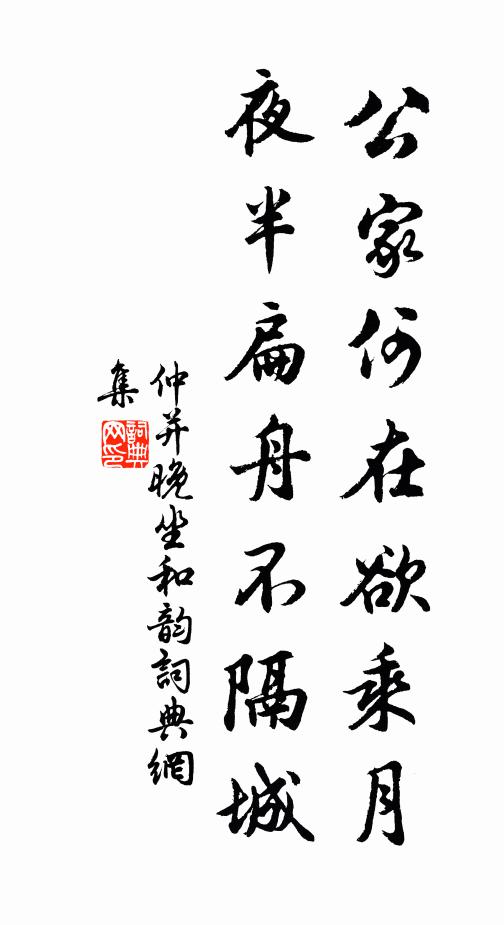 公家何在欲乘月
夜半扁舟不隔城
仲并晚坐和韵詞典網
集
詞典网印